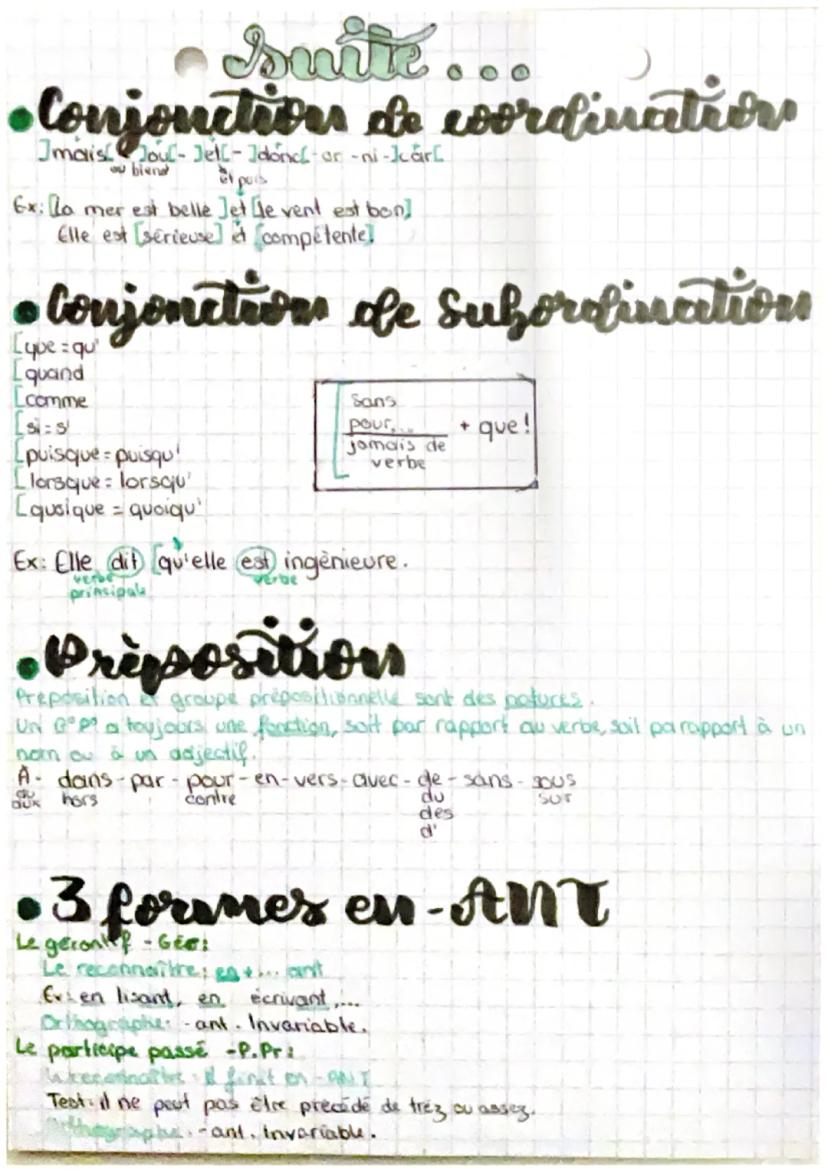 Suite...
• Conjonction de coordination
]mais[ ]ou[- ]et[- ]donc[-or -ni -]car[
ou bien et puis
Ex: [La mer est belle ]et [le vent est bon]
Elle est [sérieuse] et [compétente].
• Conjonction de Subordination
[que = qu'
[quand
[comme
[si = s'
[puisque = puisqu'
[lorsque = lorsqu'
[quoique = quoiqu'
Sans
pour... + que!
jamais de
verbe
Ex: Elle dit [qu'elle est ingènieure.
verbe verbe
principale
• Prèposition
Preposition et groupe prépositionnelle sont des natures.
Un G°P° a toujours une fonction, soit par rapport au verbe, soit pa rapport à un
nom ou à un adjectif.
À - dans - par - pour - en - vers - avec - de - sans - sous
au hors contre du sur
aux des
d'
• 3 formes en -ANT
Le gérontif - Gér:
Le reconnaître: en + ... ant
Ex: en lisant, en écrivant,...
Orthographe: -ant. Invariable.
Le participe passé -P.Pr:
Le reconnaître: il finit en -ANT
Test: il ne peut pas être précédé de tréz ou assez.
Orthographe: -ant. Invariable.